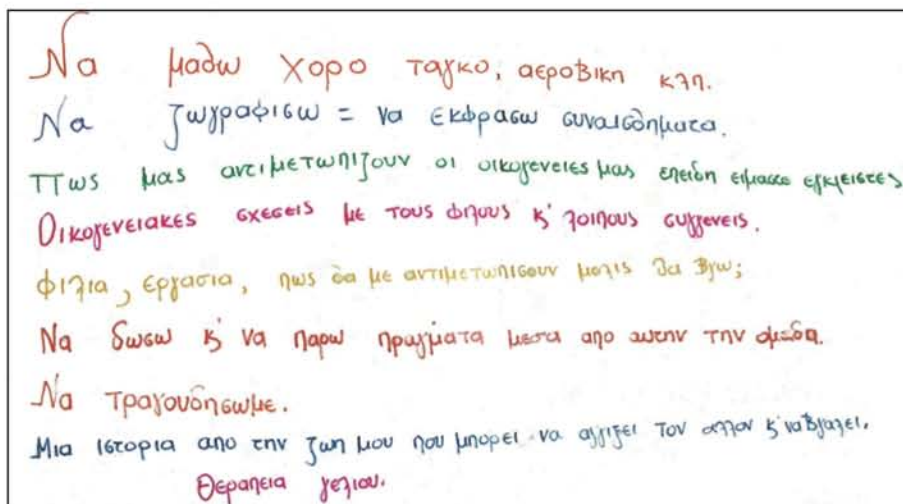 Να μαθω χορο ταγκο, αεροβικη κλπ.
Να ζωγραφισω = να εκφρασω συναισθηματα.
Πως μας αντιμετωπιζουν οι οικογενειες μας επειδη ειμαστε εγκλειστες
Οικογενειακες σχεσεις με τους φιλους κ' λοιπους συγγενεις.
φιλια, εργασια, πως θα με αντιμετωπισουν μολις θα βγω;
Να δωσω κ' να παρω πραγματα μεσα απο αυτην την ομαδα.
Να τραγουδησωμε.
Μια ιστορια απο την ζωη μου που μπορει να αγγιξει τον αλλον κ' να βγαλει.
Θεραπεια γελιου.